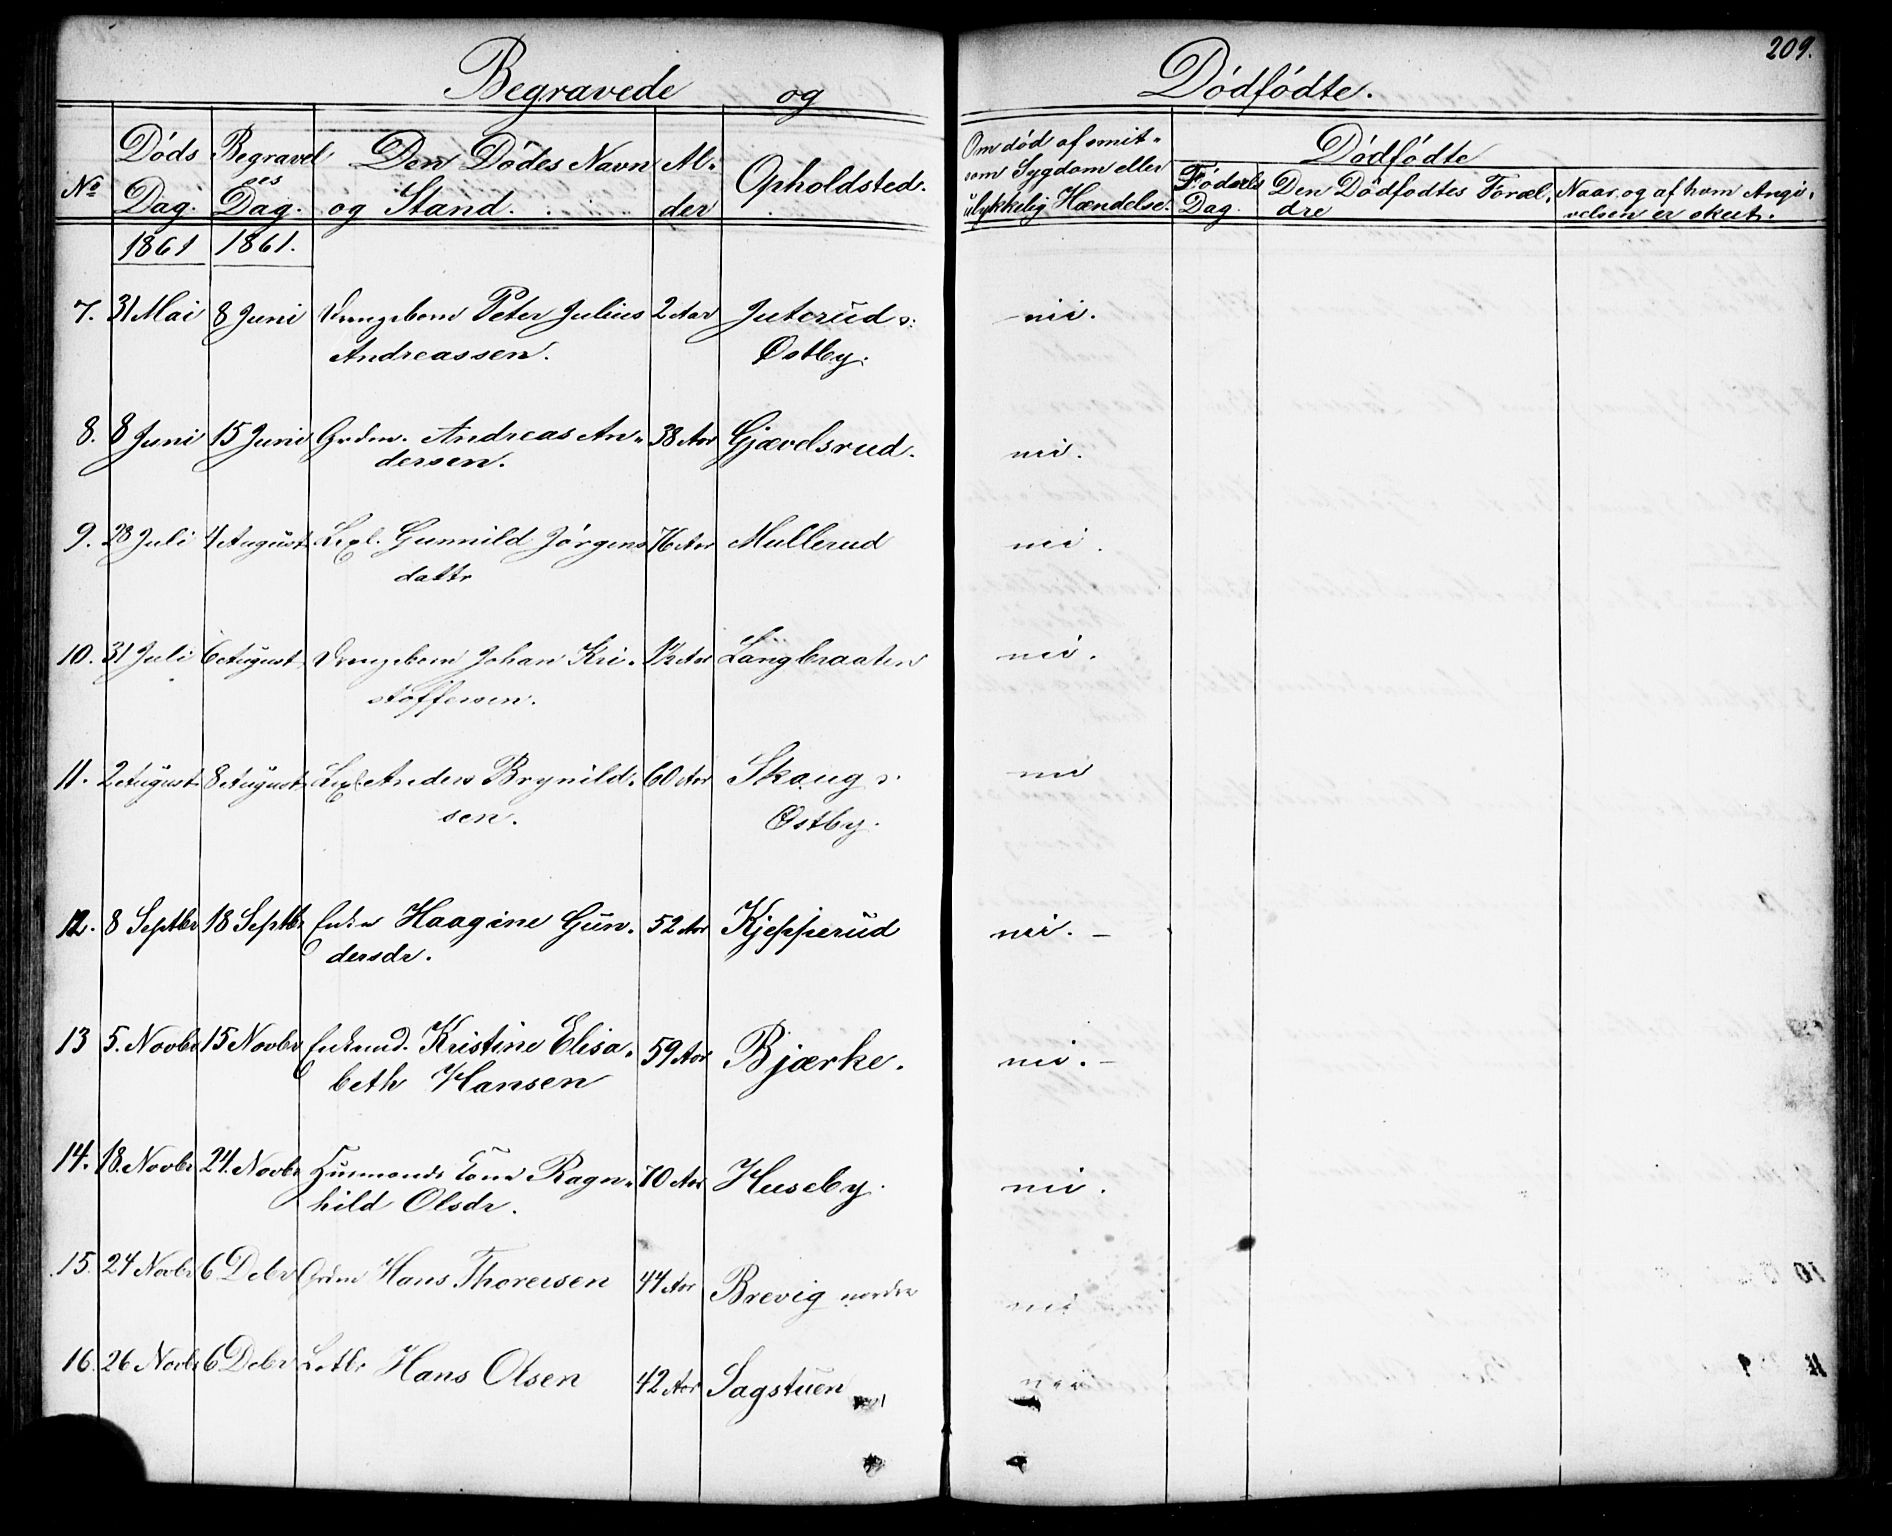 209.
Begravede og Dødfødte.
No
Døds Dag.
Begravelses Dag.
Den Dødes Navn og Stand.
Alder
Opholdsted.
Om død af smitsom Sygdom eller ulykkelig Hændelse.
Dødfødte
Fødsels Dag
Den Dødfødtes Forældre
Naar og af hvem Angivelsen er skeet.
1861 1861.
7. 31 Mai 8 Juni Drengebarn Peter Julius 2 Aar Juterud
Andreassen. Østby.
nei.
8. 8 Juni 15 Juni Grdm. Andreas An- 38 Aar Gjævelsrud.
dersen.
nei.
9. 28 Juli 4 August Lægl. Gunnild Jørgens 76 Aar Mullerud
dattr
nei.
10. 31 Juli 6 August Drengebarn Johan Kri- 1½ Aar Langbraaten
stoffersen.
nei.
11. 2 August 8 August Lægl. Anders Brynild- 60 Aar Skaug
sen. Østby.
nei
12. 8 Septbr 18 Septbr Enke Haagine Gun- 52 Aar Kjepperud
dersdr.
nei. –
13 5. Novbr 15 Novbr Kristine Elisa- 59 Aar Bjærke.
beth Hansen
nei. –
14. 18. Novbr 24. Novbr Husmands Kone Ragn- 70 Aar Huseby.
hild Olsdr.
nei.
15. 24 Novbr 6 Debr Grdm Hans Thoresen 44 Aar Brevig nordre
nei
16. 26 Novbr 6 Debr Hans Olsen 42 Aar Sagstuen
nei